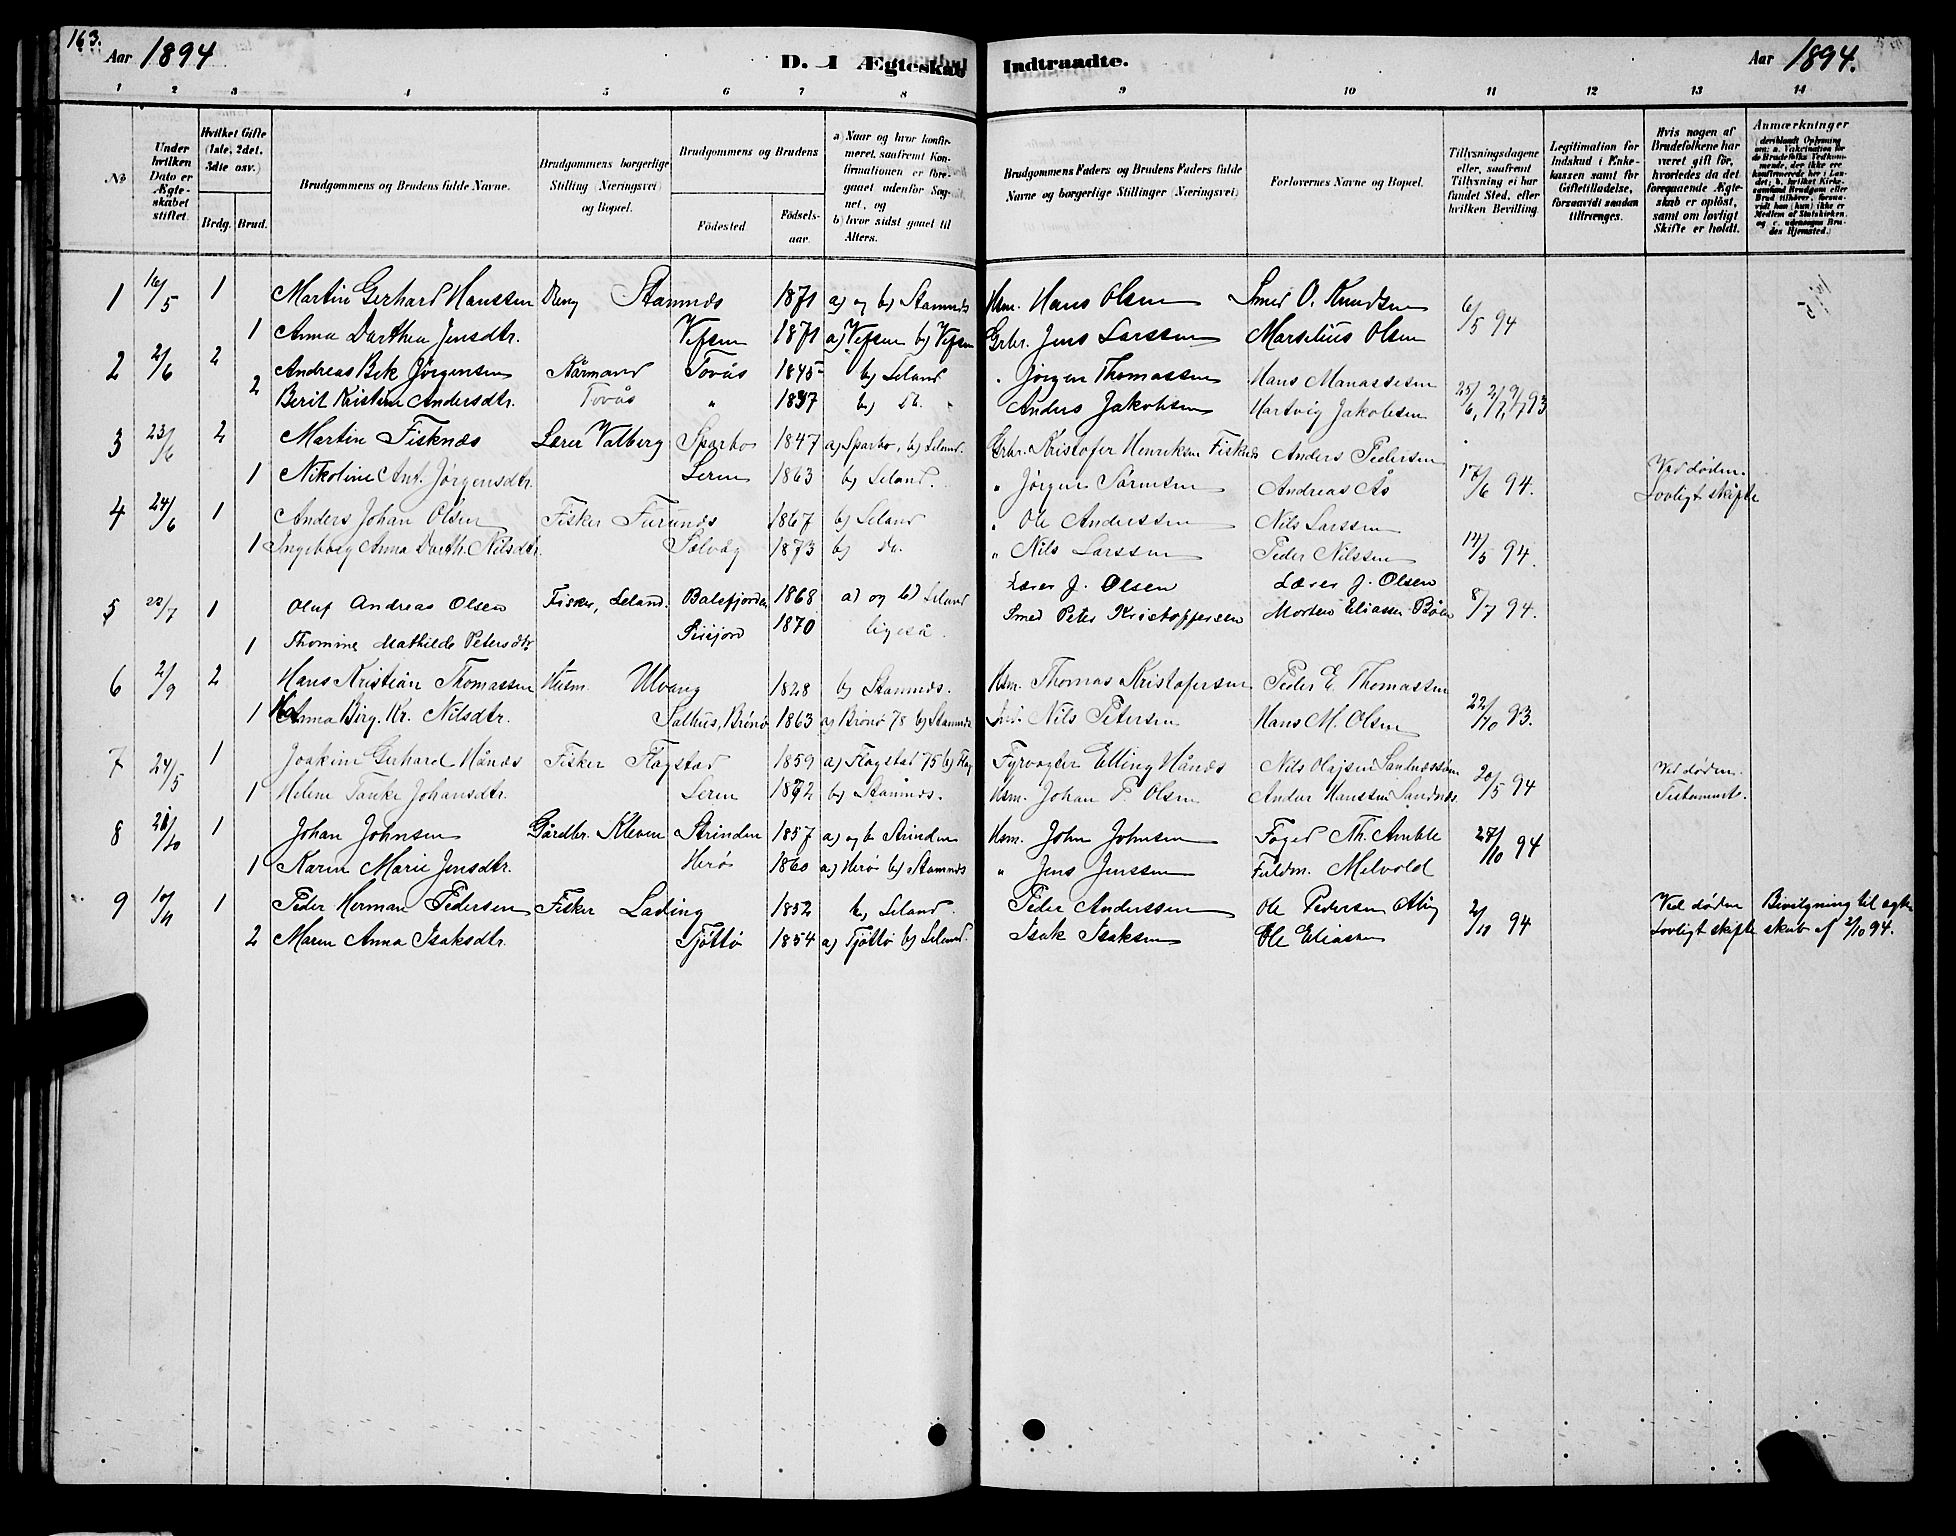 163.
Aar 1894
D. I Ægteskab Indtraadte.
Aar 1894.
1 2 3 4 5 6 7 8 9 10 11 12 13 14
No
Under hvilken Dato er Ægteskabet stiftet.
Hvilket Gifte (1ste, 2det, 3die osv.)
Brdg. Brud.
Brudgommens og Brudens fulde Navne.
Brudgommens borgerlige Stilling (Næringsvei) og Bopæl.
Brudgommens og Brudens
Födested
Födsels-aar.
a) Naar og hvor konfirmeret, saafremt Konfirmationen er foregaaet udenfor Sognet, og
b) hvor sidst gaaet til Alters.
Brudgommens Faders og Brudens Faders fulde Navne og borgerlige Stillinger (Næringsvei)
Forlovernes Navne og Bopæl.
Tillysningsdagene eller, saafremt Tillysning ei har fundet Sted, efter hvilken Bevilling.
Legitimation for Indskud i Enkekassen samt for Giftetilladelse, forsaavidt saadan tiltrænges.
Hvis nogen af Brudefolkene har været gift før, hvorledes da det foregaaende Ægteskab er oplöst, samt om lovligt Skifte er holdt.
Anmærkninger
1 16/5 1 Martin Gerhard Hanssen Dreng Stamnes 1871 a) og b) Stamnes Hsm. Hans Olsen Smed O. Knudsen 6/5 94
1 Anna Darthea Jensdtr. Vefsen 1871 a) Vefsen b) Vefsen Grbr. Jens Larssen Marselius Olsen
2 2/6 2 Andreas Bek Jørgensen Kårmand Tovås 1845 b) Leland " Jørgen Thomassen Hans Manassesen
2 Berit Kristine Andersdtr. Tovås " 1837 b) do. " Anders Jakobsen Hartvig Jakobsen 25/6, 2/7, 9/7 93
3 23/6 2 Martin Fisknæs Lærer Valberg Sparbo 1847 a) Sparbo, b) Leland. Grbr. Kristofer Henriksen Fisknes Anders Pedersen
1 Nikoline Ant. Jørgensdtr. Leren 1863 b) Leland. " Jørgen Sørensen Andreas Ås 17/6 94. Ved døden. Lovligt skifte
4 24/6 1 Anders Johan Olsen Fisker Furunes 1867 b) Leland " Ole Anderssen Nils Larssen
1 Ingeborg Anna Darth. Nilsdtr. Sølvåg 1873 b) do. " Nils Larssen Peder Nilssen 14/5 94.
5 22/7 1 Oluf Andreas Olsen Fisker, Leland. Balsfjorden 1868 a) og b) Leland Lærer J. Olsen Lærer J. Olsen
1 Thomine Mathilde Petersdtr. 1870 ligeså. Smed Peter Kristoffersen Morten Eliassen Bøen 8/7 94.
6 2/9 2 Hans Kristian Thomassen Husm. Ulvang 1828 b) Stamnes. Hsm. Thomas Kristofersen Peder E. Thomassen
1 Anna Birg. Kr. Nilsdtr. Salhus, Brønø 1863 a) Brønø 78 b) Stamnes Nils Petersen Hans M. Olsen 22/10 93.
7 24/5 1 Joakim Gerhard Hånes Fisker Flagstad 1859 a) Flagstad 75 b) Flag Fyrvogter Elling Hånes Nils Olajsen
1 Helene Tanke Johansdtr. Leren 1872 b) Stamnes. Hsm. Johan P. Olsen Ander Hanssen Sandnes 20/5 94 Ved døden. Testamente.
8 21/10 1 Johan Johnsen Gårdbr. Kleven Strinden 1857 a) og b Strinden Hsm. John Johnsen Foged Th. Amble
1 Karen Marie Jensdtr. Herø 1860 a) Herø b) Stamnes " Jens Jenssen Fuldm. Melvold 27/10 94
9 10/11 1 Peder Herman Pedersen Fisker Lading 1852 b) Leland. Peder Anderssen Ole Pedersen 2/11 94
2 Maren Anna Isaksdtr. Tjøttø 1854 a) Tjøttø b) Leland. Isak Isaksen Ole Eliassen
Ved døden Lovligt skifte Bevilgning til egteskab af 2/10 94.